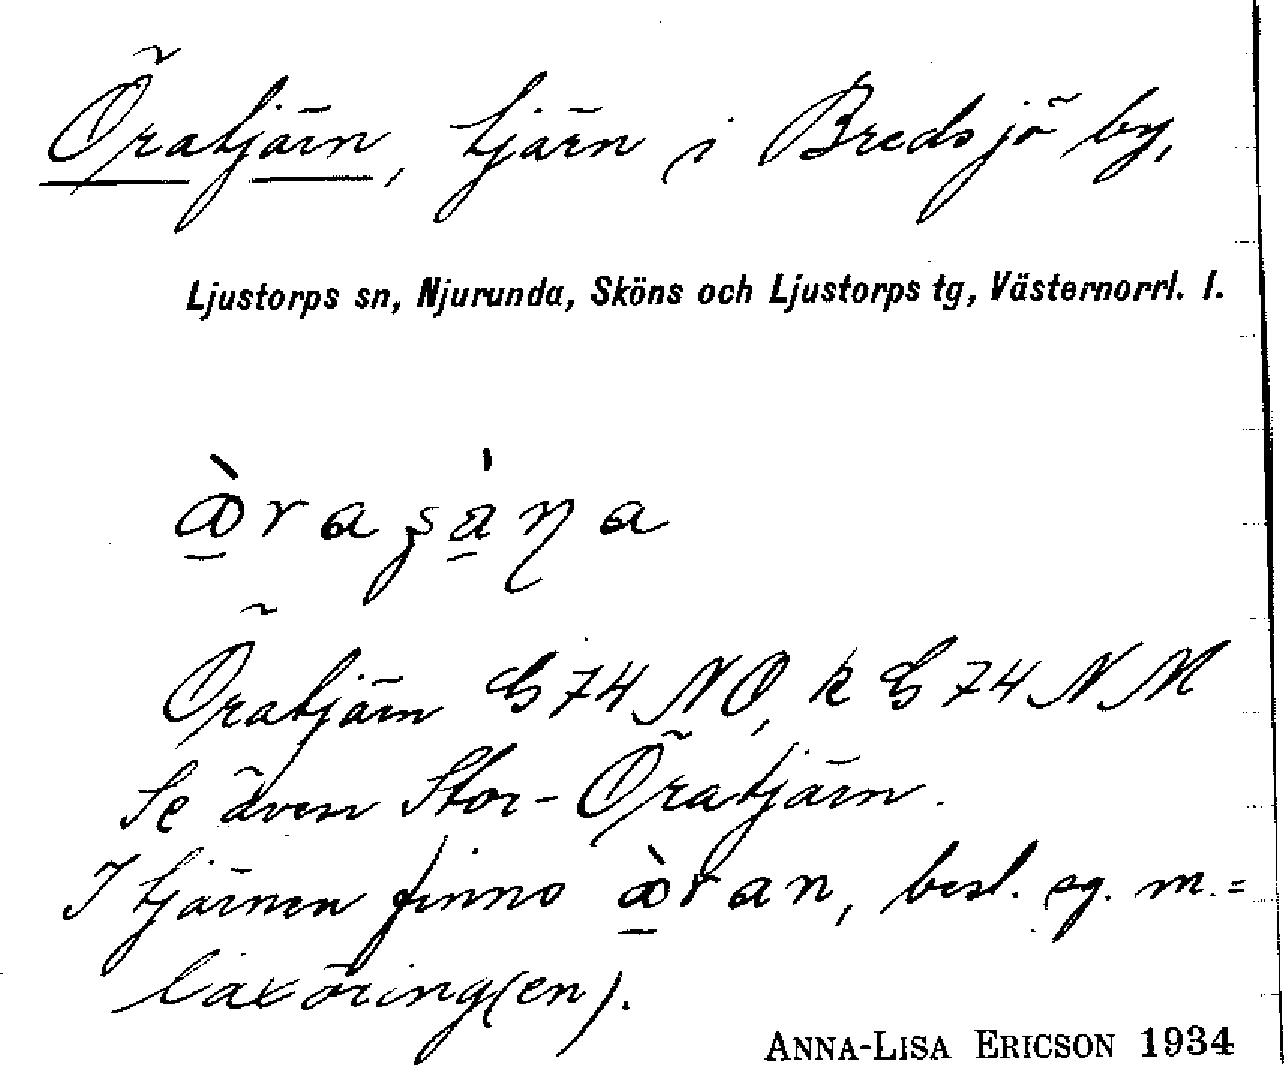 Öratjärn, tjärn i Bredsjö by,
Ljustorps sn, Njurunda, Sköns och Ljustorps tg, Västernorrl. l.
Öratjärn G 74 NO, k G 74 NM
Se även Stor-Öratjärn.
I tjärnen finns æ̀ran, best. sg. m. =
laxöring(en).
ANNA-LISA ERICSON 1934